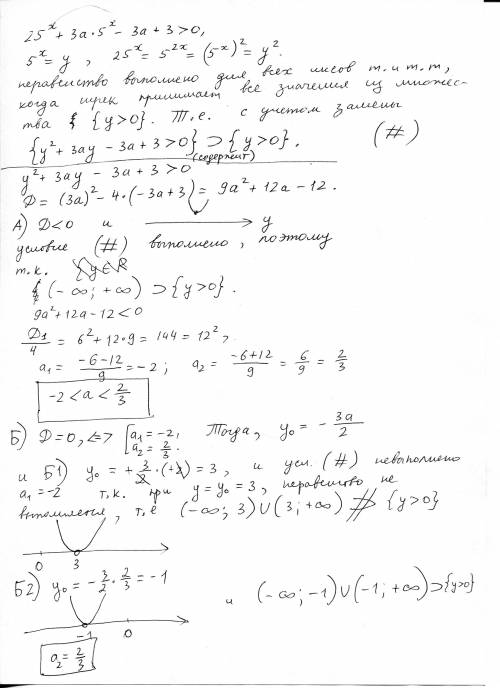 25^x + 3a·5^x − 3a + 3 > 0,
5^x = y , 25^x = 5^{2x} = (5^x)^2 = y^2.
неравенство выполнено для всех иксов т. и т. т,
когда игрек принимает все значения из множес-
тва {y>0}. Т.е. с учетом замены
{y^2 + 3ay − 3a + 3 > 0} ⊃ {y>0}. (#)
(содержит)
y^2 + 3ay − 3a + 3 > 0
D = (3a)^2 − 4·(−3a+3) = 9a^2 + 12a − 12.
А) D<0 и y
условие (#) выполнено, поэтому
т.к. {y∈R
(−∞; +∞) ⊃ {y>0}.
9a^2 + 12a − 12 < 0
D1/4 = 6^2 + 12·9 = 144 = 12^2,
a1 = (−6−12)/9 = −2 ; a2 = (−6+12)/9 = 6/9 = 2/3
−2 < a < 2/3
Б) D=0, <=> [a1 = −2, a2 = 2/3. Тогда, y0 = − 3a/2
и Б1) y0 = + 3/2·(+2) = 3 , и усл. (#) невыполнено
a1 = −2 т.к. при y = y0 = 3, неравенство не
выполняется, т.е (−∞; 3) ∪ (3; +∞) ⊅ {y>0}
0 3
Б2) y0 = − 3/2 · 2/3 = −1 и (−∞; −1) ∪ (−1; +∞) ⊃ {y>0}
−1 0
a2 = 2/3